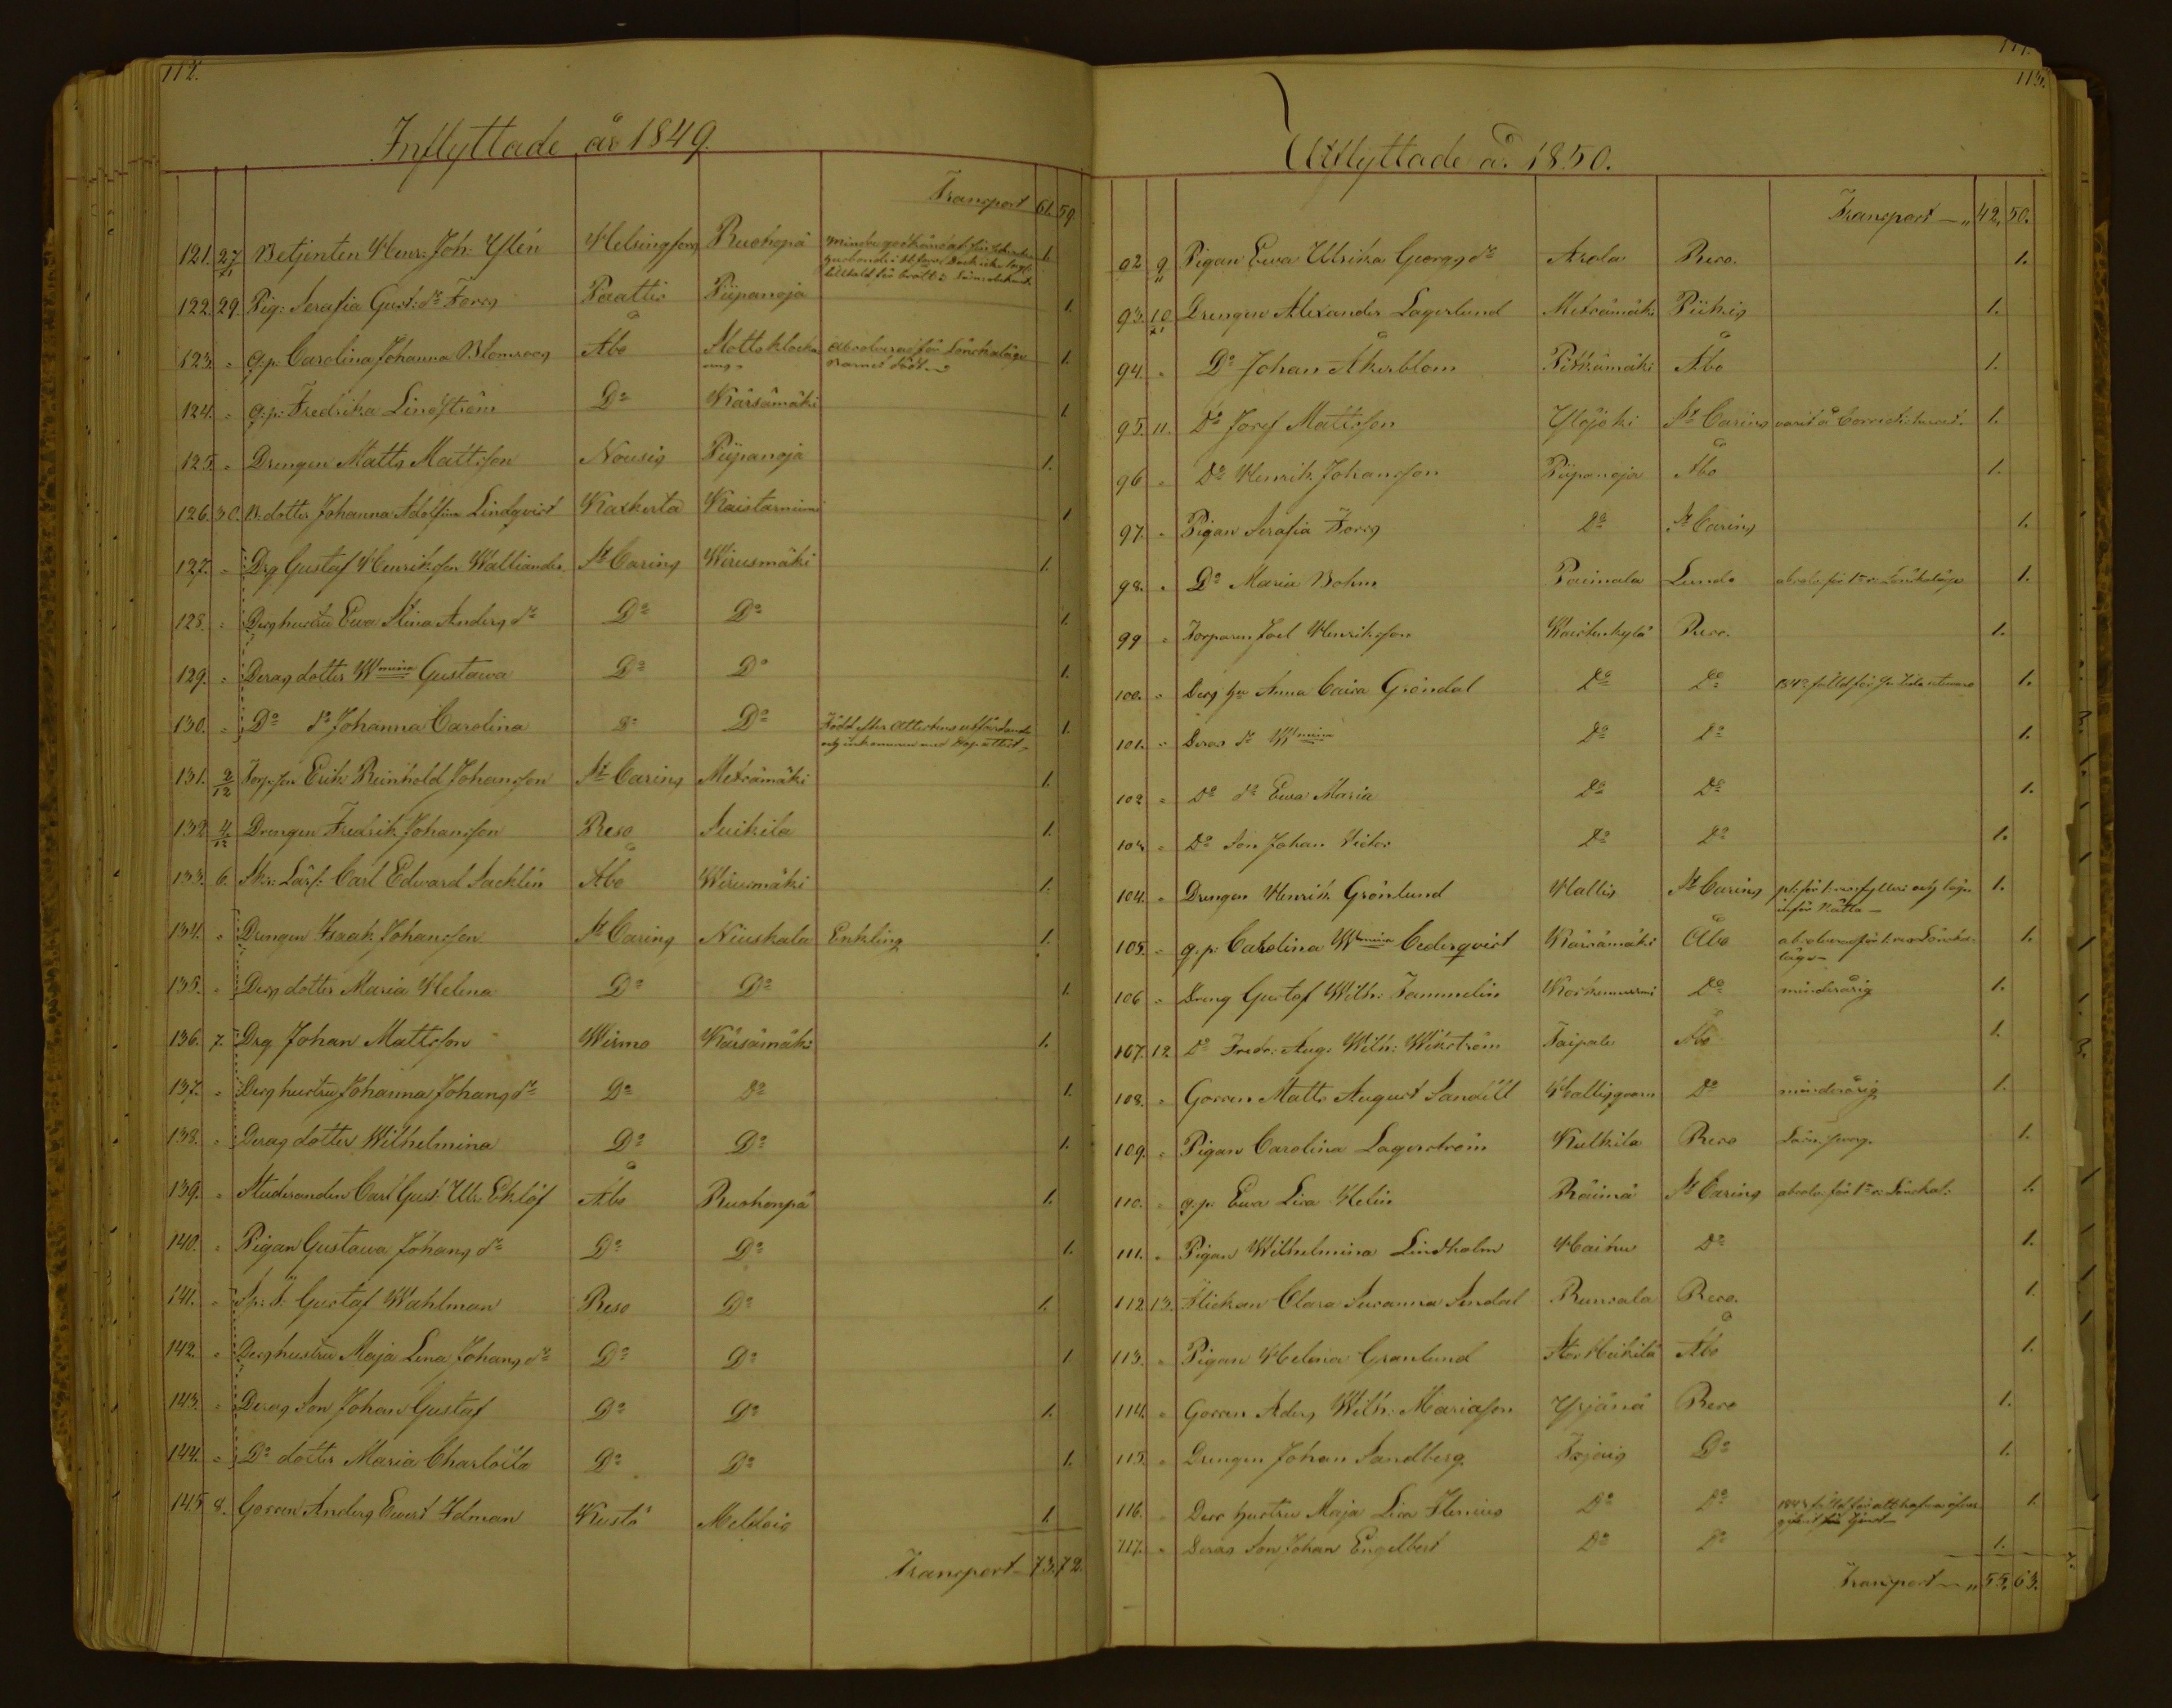 112.
Inflyttade år 1849.
Transport 61. 59.
121. 27/11 Betjenten Henr: Joh: Ylén Helsingfors Ruohopä 1.
122. 29. Pig: Serafia Gust: dr Forss Paattis Piipanoja 1.
123. " q.p. Carolina Johanna Blomroos Åbo Slottsklocka 1.
124. " q.p. Fredrika Lindström Do Kärsämäki 1.
125. " Drengen Matts Mattsson Nousis Piipanoja 1.
126. 30. B. dotter Johanna Adolfina Lindqvist Kaxkerta Kaistarniemi 1
127. " Drg Gustaf Henriksson Walliander St Carins Wirusmäki 1.
128. " Dess hustru Ewa Stina Anders dr Do Do 1.
129. " Deras dotter Wmina Gustawa Do Do 1.
130. " Do dr Johanna Carolina Do Do Född efter Attestens utfärdande 1.
och inkommen med Dop attest
131. 2/12 Torp.son Erik Reinhold Johansson St Carins Meträmäki 1.
132 4/12 Drengen Fredrik Johansson Reso Suikila 1.
133. 6. Skr: Lärl: Carl Edward Sacklén Åbo Wirusmäki 1.
134. " Drengen Isaak Johansson St Carins Niuskala Enkling 1.
135. " Dess dotter Maria Helena Do Do 1.
136. 7. Drg Johan Mattsson Wirmo Kärsämäki 1.
137. " Dess hustru Johanna Johans dr Do Do 1.
138. " Deras dotter Wilhelmina Do Do 1.
139. " Studeranden Carl Gust: Ulr: Eklöf Åbo Ruohonpä 1.
140. " Pigan Gustawa Johans dr Do Do 1.
141. " Sp: S: Gustaf Wahlman Reso Do 1.
142. " Dess hustru Maja Lena Johans dr Do Do 1
143. " Deras Son Johan Gustaf Do Do 1.
144. " Do dotter Maria Charlotta Do Do 1.
145 8. Gossen Anders Ewert Idman Kustö Meldois 1.
Transport 73. 72.
113.
Utflyttade år 1850.
Transport " 42, 50.
92 9 Pigan Ewa Ulrika Georgs dr Arola Reso. 1.
93. 10 Drengen Alexander Lagerlund Meträmäki Piikis 1.
94. " Do Johan Åkerblom Pitkämäki Åbo 1.
95. 11. Do Josef Mattsson Ylijoki St Carins varit å Corrects: huset. 1.
96 " Do Henrik Johansson Piipanoja Åbo 1.
97. " Pigan Serafia Forss Do St Carins 1.
98. " Do Maria Bohm Paimala Lundo absolv. för 1a r: Lönskaläge 1.
99 " Torparen Joel Henriksson Kaistenkylä Reso. 1.
100. " Dess hu Anna Caisa Gröndal Do Do 1.
101. " Deras dr Wmina Do Do 1.
102 " Do dr Ewa Maria Do Do 1.
103 " Do Son Johan Victor Do Do 1.
104. " Drengen Henrik Grönlund Hallis St Carins 1.
inför Rätta
105. " q.p. Carolina Wmina Cederqvist Kärsämäki Åbo absolverad för 1: res Lönska- 1.
läge
106 " Dreng Gustaf Wilh: Tammelin Korkeniemi Do minderårig 1.
107. 12. Do Fredr: Aug: Wilh: Wikström Taipale Åbo 1.
108. " Gossen Matts August Sandell Hallisqvarn Do minderårig 1.
109. " Pigan Carolina Lagerström Kulkila Reso 1.
110. " q.p. Ewa Lisa Helin Räimä St Carins absolv för 1a r: Lönskal: 1.
111. " Pigan Wilhelmina Lindholm Haihu Do 1.
112. 13. Flickan Clara Susanna Sundal Runsala Reso. 1.
113. " Pigan Helena Granlund Stor Heikilä Åbo 1.
114. " Gossen Aders Wilh: Mariasson Yrjänä Reso 1.
115. " Drengen Johan Sandberg Do 1.
116. " Dess hustru Maja Lisa Do Do 1.
117. " Deras Son Johan Engelbert Do Do 1.
Transport " 55. 63.